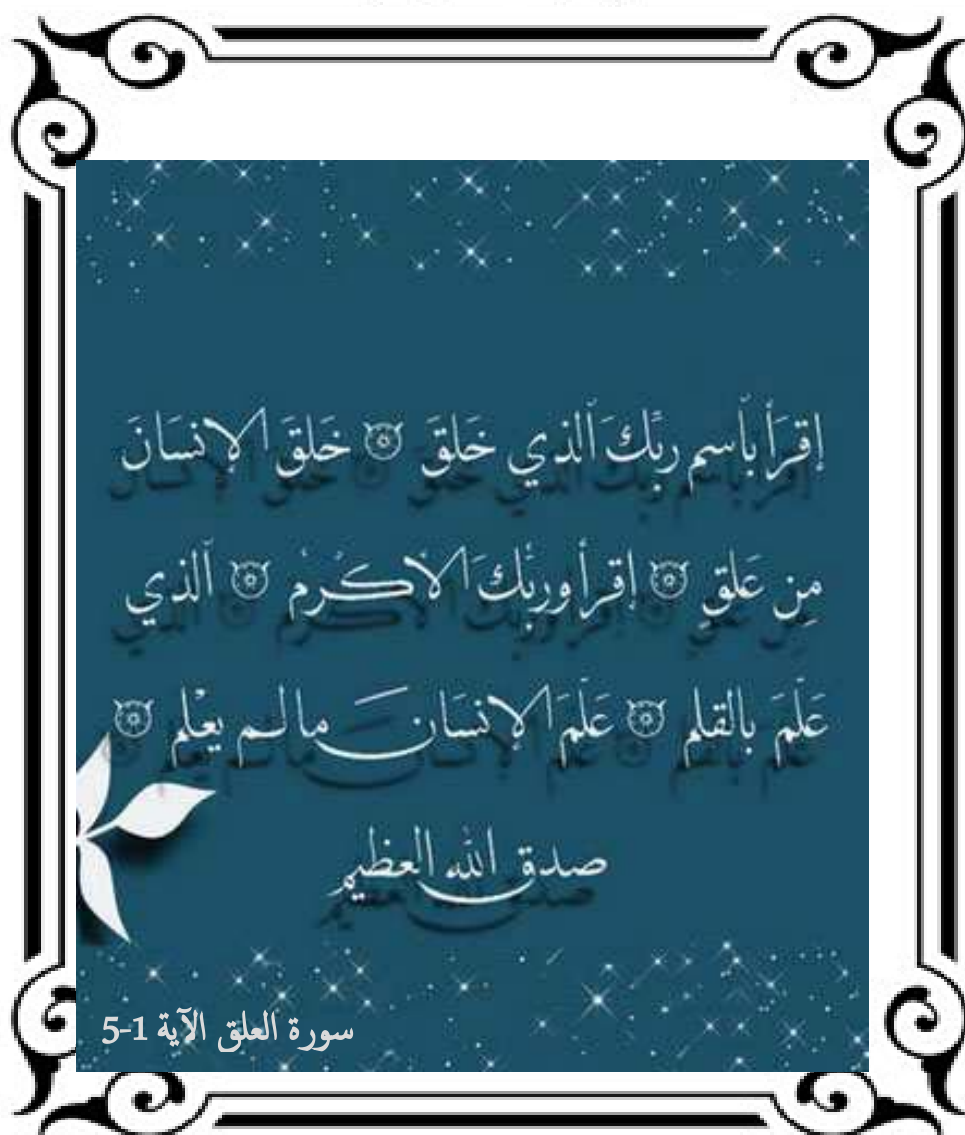 إقرَأ بٱسم ربِّكَ ٱلذي خَلقَ ۞ خَلقَ الإنسَانَ
مِن عَلقٍ ۞ إقرأ وربُّكَ الأكرمُ ۞ ٱلذي
عَلَّمَ بالقلمِ ۞ عَلَّمَ الإنسَانَ مالم يعْلم ۞
صدق الله العظيم
سورة العلق الآية 1-5